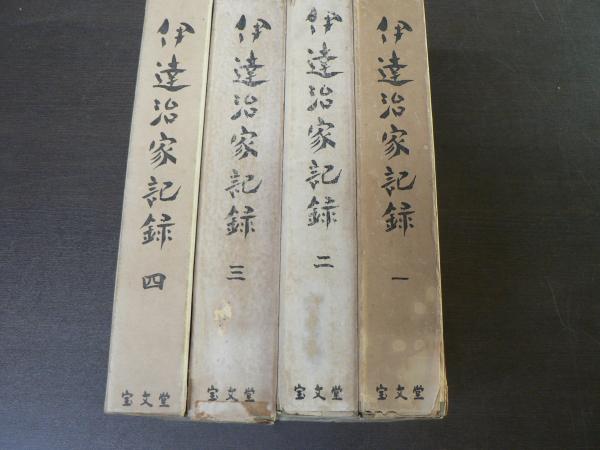 伊達治家記録 一
宝文堂
伊達治家記録 二
宝文堂
伊達治家記録 三
宝文堂
伊達治家記録 四
宝文堂